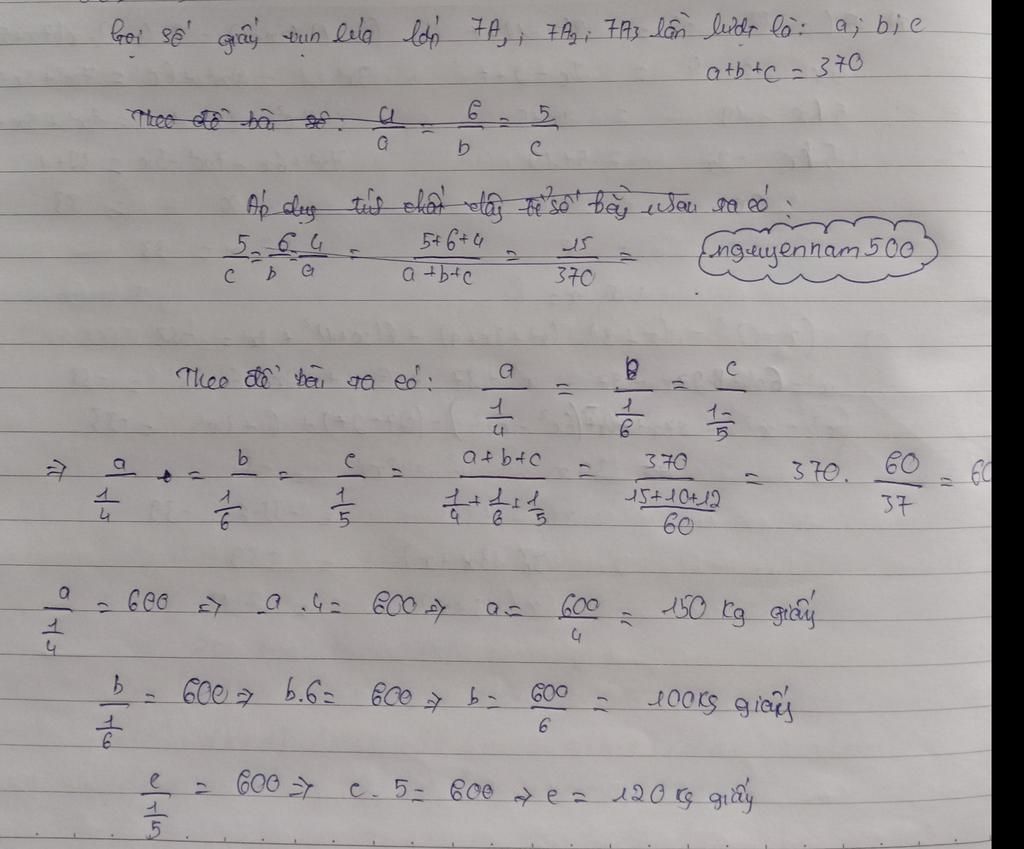 Gọi số giấy vụn của lớp 7A1; 7A2; 7A3 lần lượt là: a; b; c
a+b+c = 370
Theo đề bài có: a/a = 6/b = 5/c
Áp dụng tính chất dãy tỉ số bằng nhau ta có:
5/c = 6/b = 4/a = (5+6+4)/(a+b+c) = 15/370 =
nguyennam500
Theo đề bài ra có: a/(1/4) = b/(1/6) = c/(1/5)
=> a/(1/4) = b/(1/6) = c/(1/5) = (a+b+c)/(1/4+1/6+1/5) = 370/((15+10+12)/60) = 370. 60/37 = 60
a/(1/4) = 600 => a.4 = 600 => a = 600/4 = 150 kg giấy
b/(1/6) = 600 => b.6 = 600 => b = 600/6 = 100kg giấy
c/(1/5) = 600 => c.5 = 600 => c = 120 kg giấy